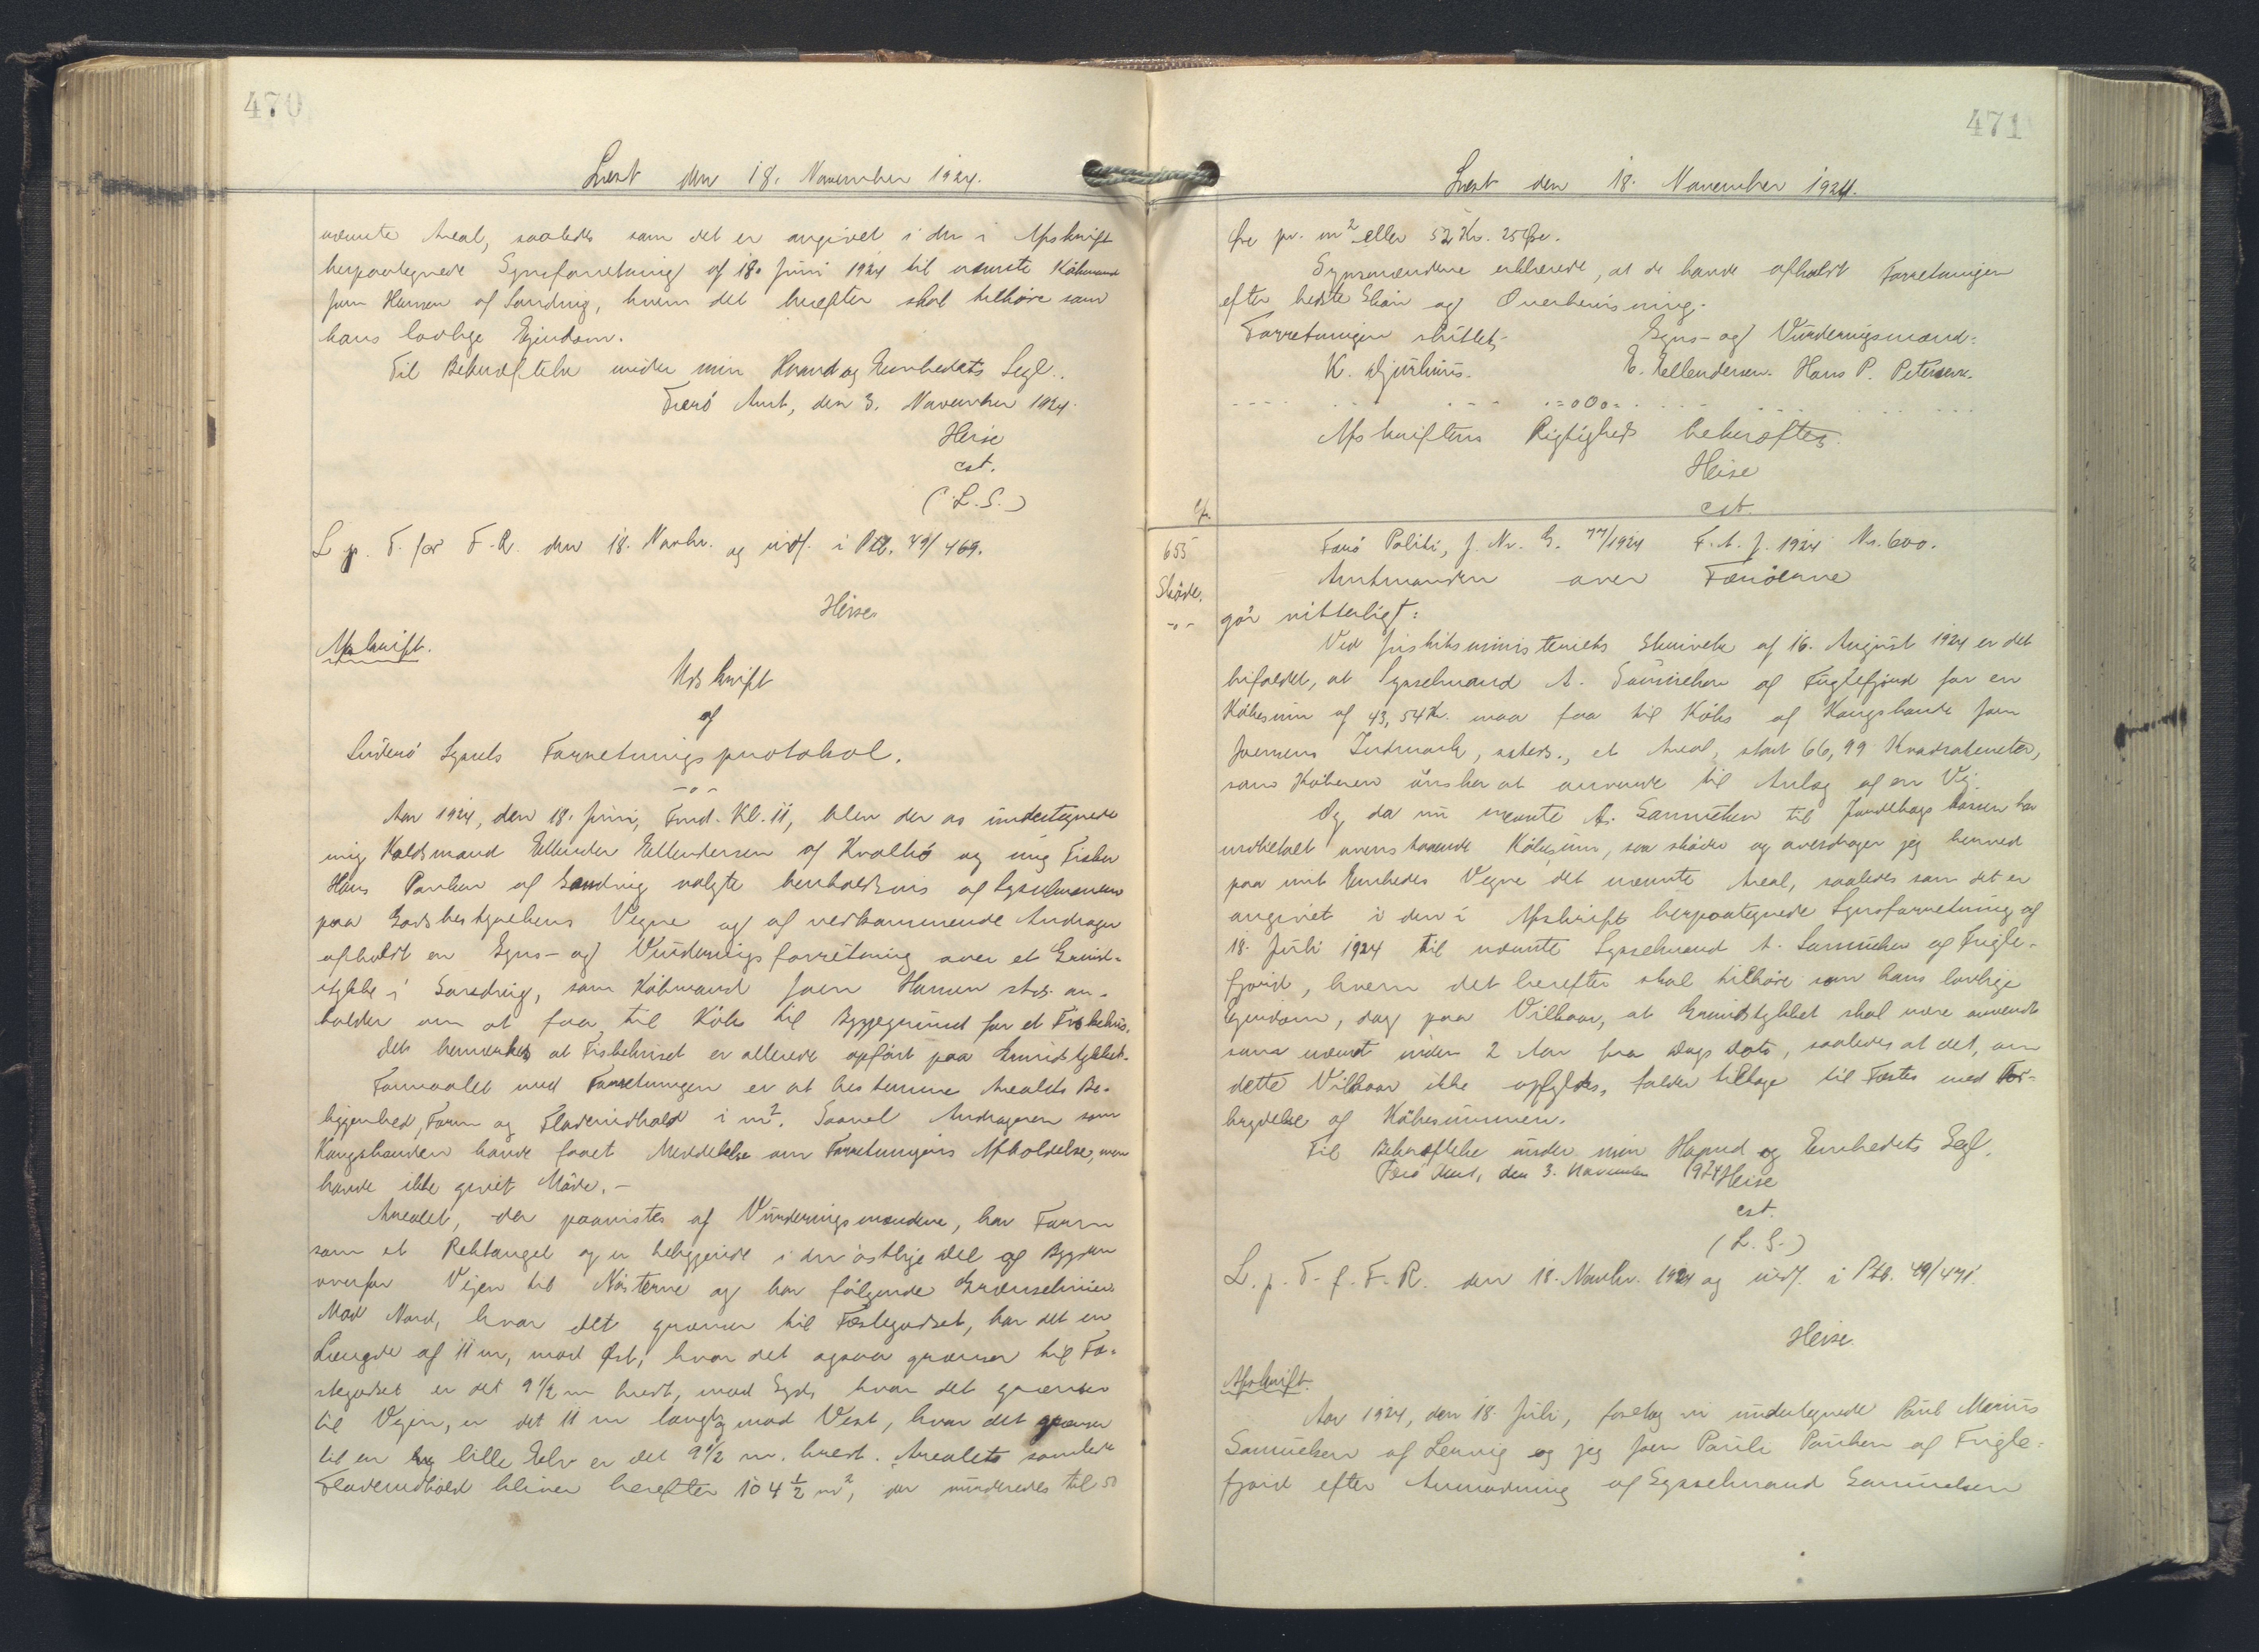 470
Læst den 18. November 1924.
nævnte Areal, saaledes som det er angivet i den i Afskrift
herpaategnede Synsforretning af 18. Juni 1924 til nævnte Købmand
Joen Hansen af Sandvig, hvem det herefter skal tilhøre som
hans lovlige Ejendom.
Til Bekræftelse under min Haand og Embedets Segl.
Færø Amt, den 3. November 1924.
Heise
cst.
(L.S.)
L. p. T. for F. R. den 18. Novbr. og indf. i Ptk. 49/469.
Heise
Afskrift.
Udskrift
af
Suderø Syssels Forretningsprotokol.
-o-
Aar 1924, den 18. Juni, Emd. Kl. 11, blev der as undertegnede
mig Ellender Ellendersen af Kvalbø og mig Fisker
Hans Poulsen af Sandvig valgte henholdsvis af Sysselmanden
paa Godsbestyrelsens Vegne og af vedkommende Andrager
afholdt en Syns- og Vurderingsforretning over et Grund-
stykke i Sandvig, som Købmand Joen Hansen stds. an-
holder om at faa til Køb til Byggegrund for et Fiskehus.
Det bemærkes at Fiskehuset er allerede opført paa Grundstykket.
Formaalet med Forretningen er at bestemme Arealets Be-
liggenhed, Form og Fladeindhold i m². Saavel Andrageren som
Kongsbonden havde faaet Meddelelse om Forretningens Afholdelse, men
havde ikke givet Møde. -
Arealet, der paavistes af Vurderingsmændene, har Form
som et Rektangel og er beliggende i den østlige Del af Bygden
ovenfor Vejen til Nøsterne og har følgende Grænselinier
Mod Nord, hvor det grænser til Fæstegodset, har det en
Længde af 11 m, mod Øst, hvor det ogsaa grænser til Fæ-
stegodset er det 9 1/2 m bredt, mod Syd, hvor det grænser
til Vejen, er det 11 m langt og mod Vest, hvor det grænser
til en lille Elv er det 9 1/2 m. bredt. Arealets samlede
Fladeindhold bliver herefter 104 1/2 m², der vurderedes til 50
471
Læst den 18. November 1924.
Øre pr. m² eller 52 Kr. 25 Øre.
Synsmændene erklærede, at de havde afholdt Forretningen
efter bedste Skøn og Overbevisning.
Forretningen sluttet.
Syns- og Vurderingsmænd:
K. Djurhuus.
E. Ellendersen. Hans P. Petersen.
Afskriftens Rigtighed bekræftes.
Heise
cst.
655
Skøde.
-o-
Færø Politi, J. Nr. G. 77/1924 F. A. J. 1924 Nr. 600.
Amtmanden over Færøerne
gør vitterligt:
Ved Justitsministeriets Skrivelse af 16. August 1924 er det
bifaldet, at Sysselmand A. Samuelsen af Fuglefjord for en
Købesum af 43,54 Kr. maa faa til Købs af Kongsbonde Joen
Joensens Indmark, sstds., et Areal, stort 66,99 Kvadratmeter,
som Køberen ønsker at anvende til Anlæg af en Vej.
Og da nu nævnte A. Samuelsen til Jordebogskassen har
indbetalt ovenstaaende Købesum, saa skøder og overdrager jeg herved
paa mit Embedes Vegne det nævnte Areal, saaledes som det er
angivet i den i Afskrift herpaategnede Synsforretning af
18. Juli 1924 til nævnte Sysselmand A. Samuelsen af Fugle-
fjord, hvem det herefter skal tilhøre som hans lovlige
Ejendom, dog paa Vilkaar, at Grundstykket skal være anvendt
som nævnt inden 2 Aar fra Dags Dato, saaledes at det, om
dette Vilkaar ikke opfyldes, falder tilbage til Fæstet med For-
brydelse af Købesummen.
Til Bekræftelse under min Haand og Embedets Segl.
Færø Amt, den 3. November 1924
Heise
cst.
(L.S.)
L. p. T. f. F. R. den 18. Novbr. 1924 og indf. i Ptk. 49/471.
Heise.
Afskrift.
Aar 1924, den 18. Juli, foretog vi undertegnede Poul Marius
Samuelsen af Lervig og jeg Joen Pauli Poulsen af Fugle-
fjord efter Anmodning af Sysselmand Samuelsen